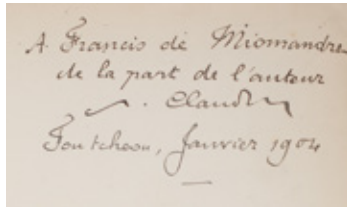 A Francis de Miomandre
de la part de l'auteur
. Claudel
Foutcheou, Janvier 1904